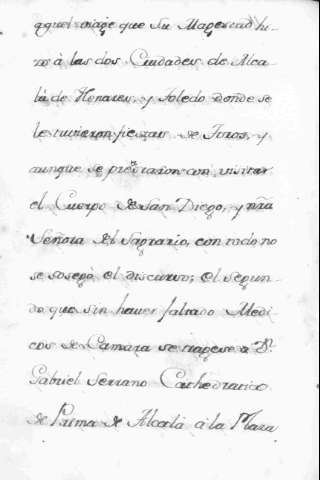 aquel viage que Su Magestad hi-
zo à las dos Ciudades de Alca-
là de Henares, y Toledo donde se
le tuvieron fiestas de Toros, y
aunque se pretextaron con visitar
el Cuerpo de San Diego, y nrã
Señora del Sagrario, con todo no
se sosegò el discurso; el segun-
do que sin haver faltado Medi-
cos de Camara se tragese a Dn.
Gabriel Serrano Cathedratico
de Prima de Alcalà à la Plaza